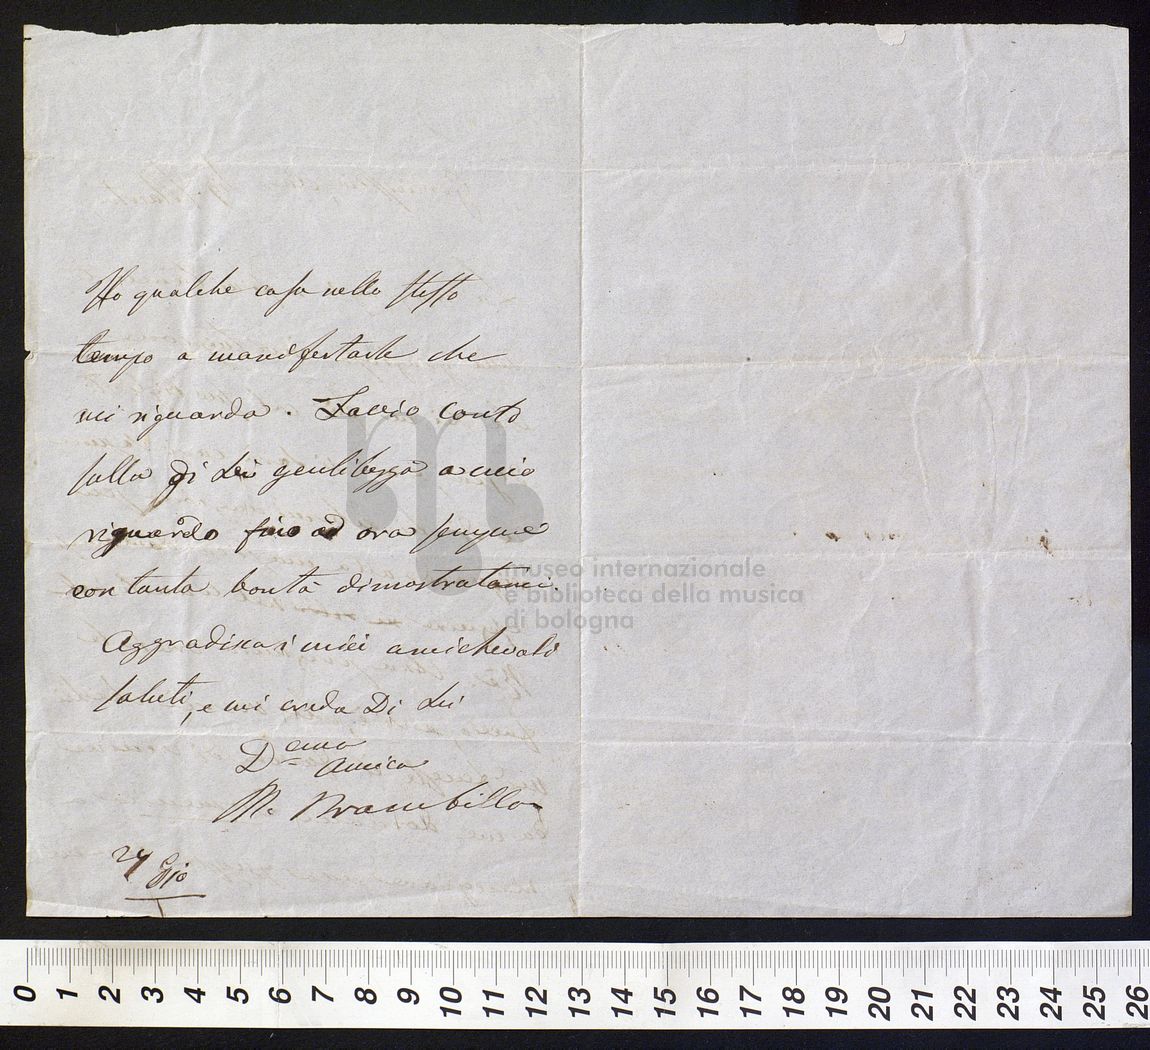 Ho qualche cosa nello stesso
tempo a manifestarle che
mi riguarda. Faccio conto
sulla di Lei gentilezza a mio
riguardo fino ad ora sempre
con tanta bontà dimostratami.
Aggradisca i miei amichevoli
saluti, e mi creda Di Lei
Dema
Amica
M. Brambilla
museo internazionale
e biblioteca della musica
di bologna
0 1 2 3 4 5 6 7 8 9 10 11 12 13 14 15 16 17 18 19 20 21 22 23 24 25 26